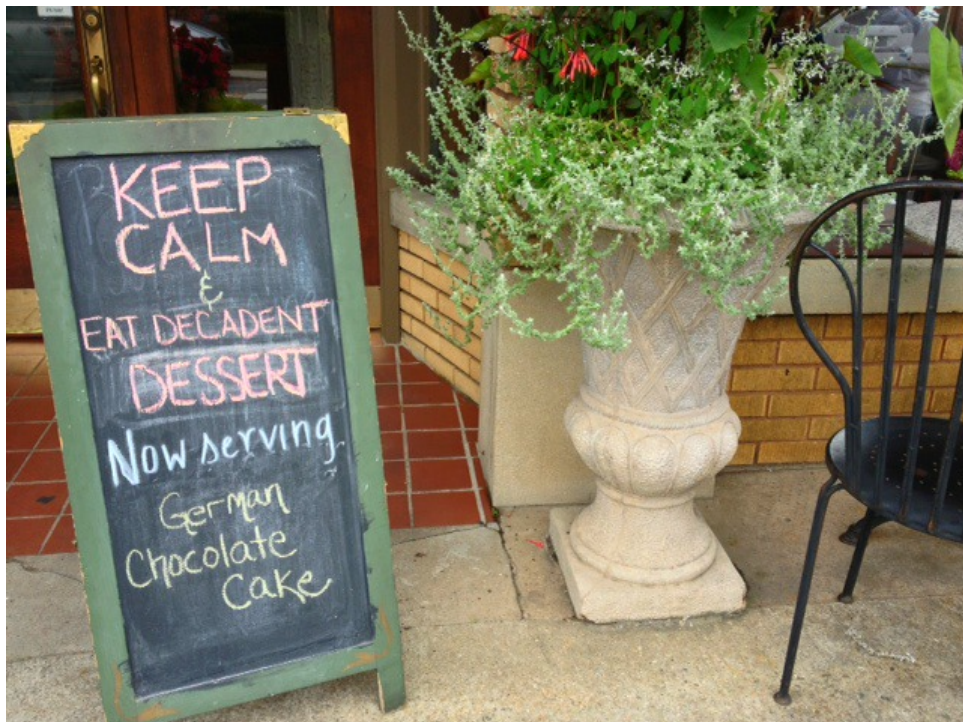 KEEP
CALM
&
EAT DECADENT
DESSERT
Now serving
German
Chocolate
Cake